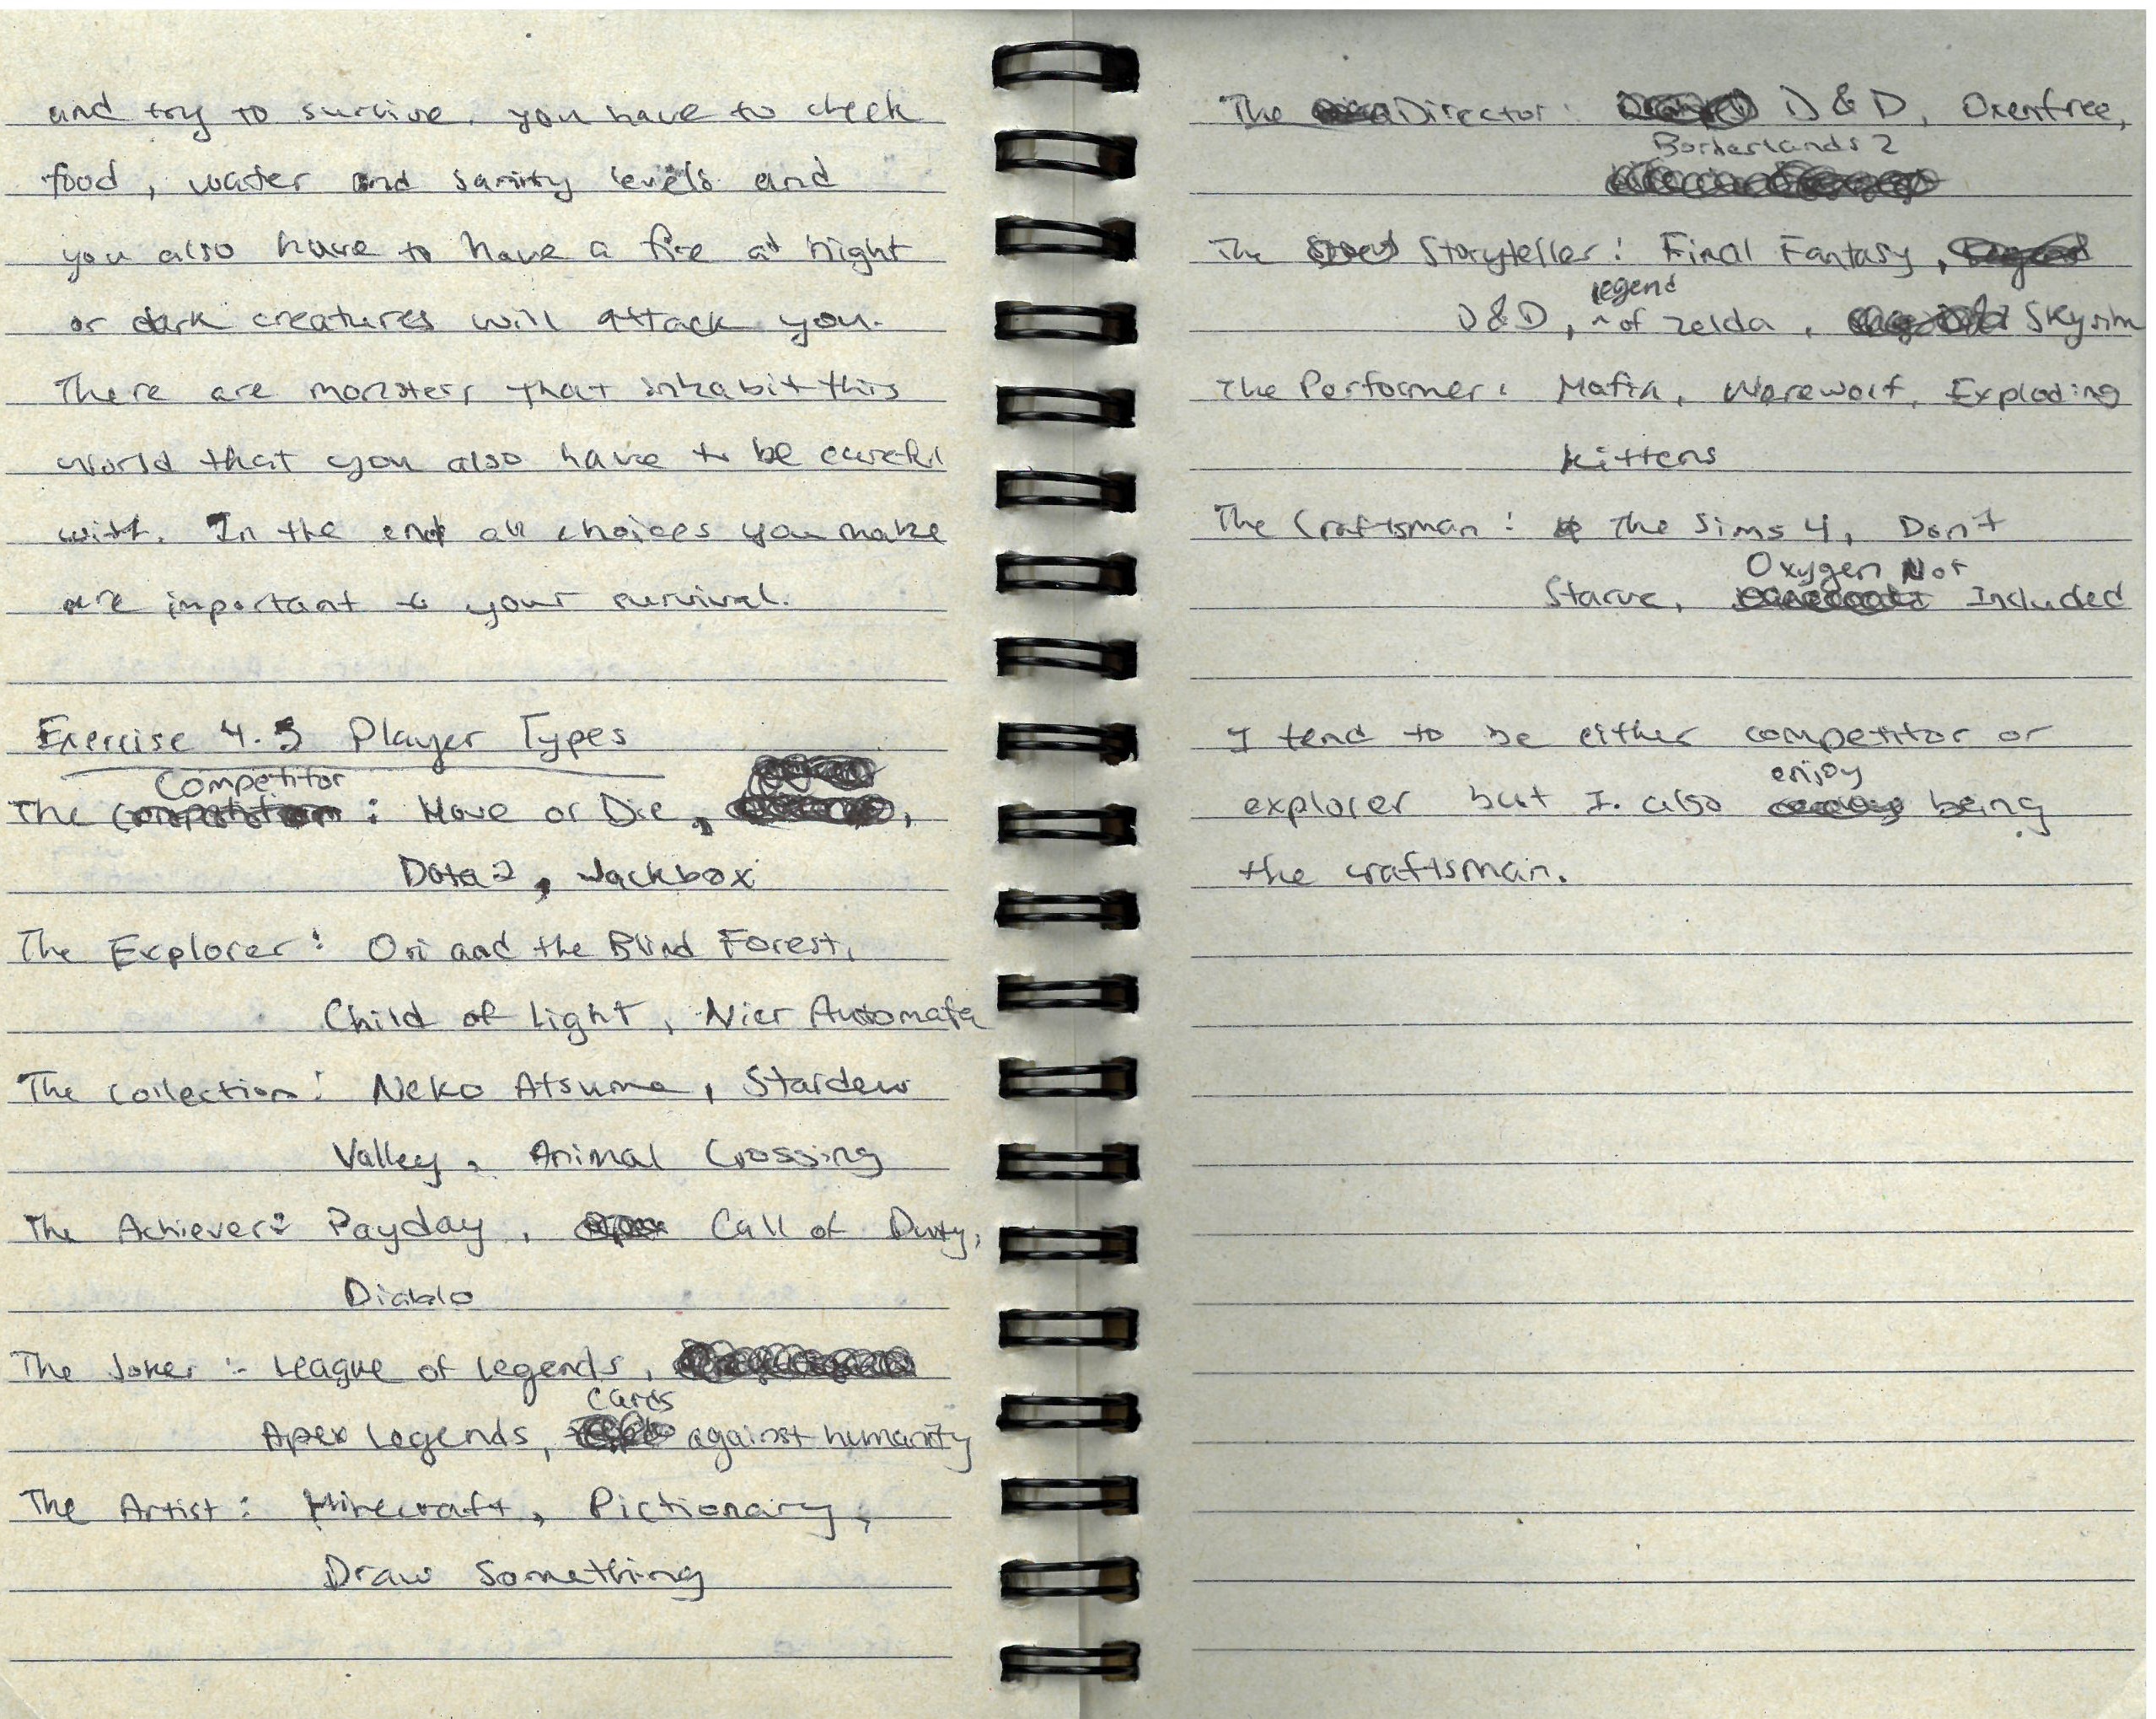 and try to survive. you have to check
food, water and sanity levels and
you also have to have a fire at night
or dark creatures will attack you.
There are monsters that inhabit this
world that you also have to be careful
with. In the end all choices you make
are important to your survival.
Exercise 4.3 Player Types
Competitor
The : Move or Die,
Dota 2, Jackbox
The Explorer: Ori and the Blind Forest,
Child of Light, Nier Automata
The Collection: Neko Atsume, Stardew
Valley, Animal Crossing
The Achiever: Payday, Call of Duty,
Diablo
The Joker :- League of Legends,
cards
Apex Legends, against humanity
The Artist: Minecraft, Pictionary,
Draw Something
The Director: D&D, Oxenfree,
Borderlands 2
The Storyteller: Final Fantasy,
legend
D&D, of Zelda, Skyrim
The Performer: Mafia, Werewolf, Exploding
Kittens
The Craftsman: The Sims 4, Don't
Oxygen Not
Starve, Included
I tend to be either competitor or
enjoy
explorer but I also being
the craftsman.